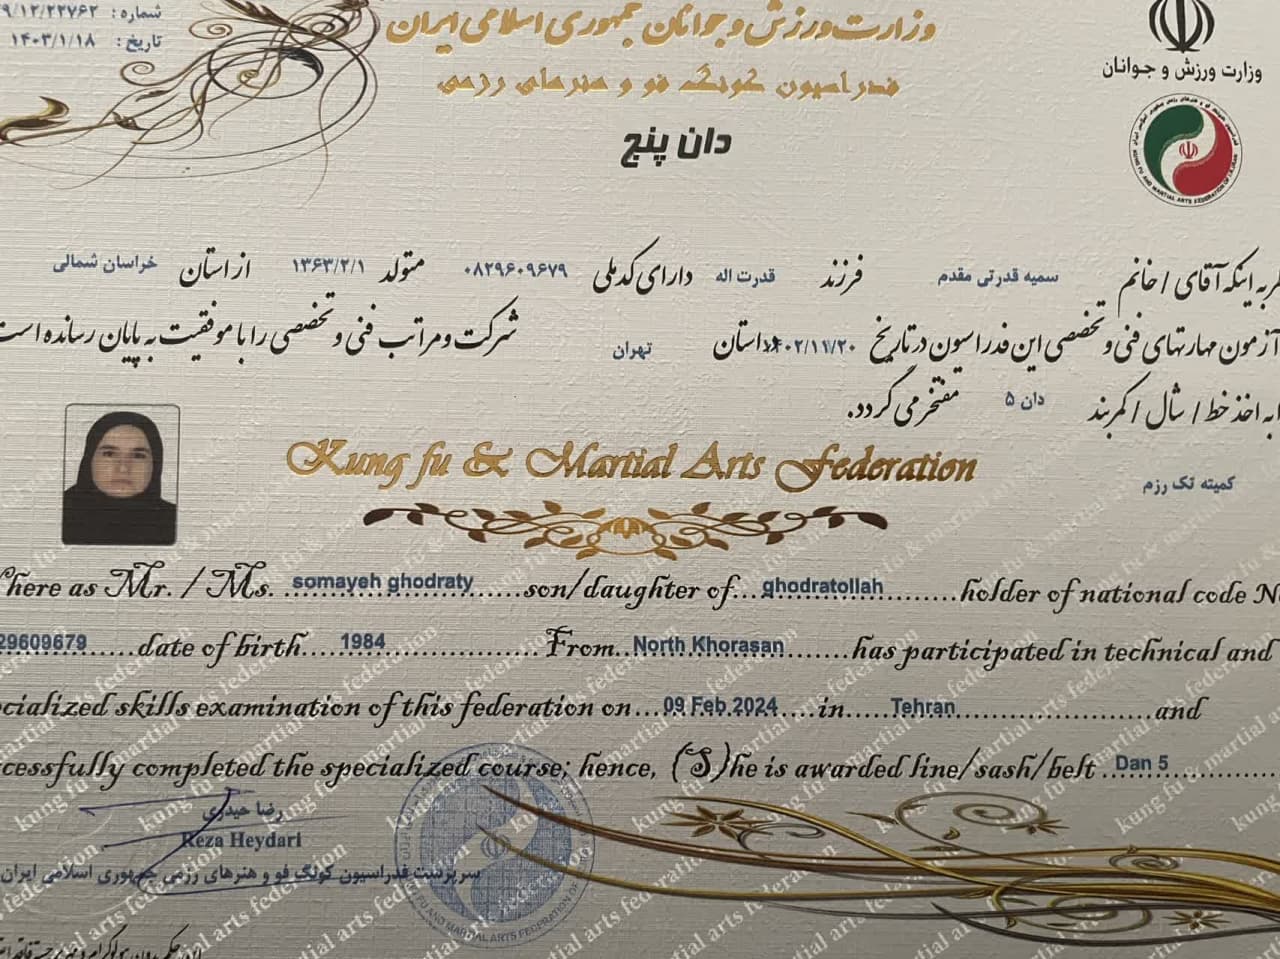 شماره: ۹/۱۲/۲۲۷۶۲
تاریخ: ۱۴۰۳/۱/۱۸
وزارت ورزش و جوانان جمهوری اسلامی ایران
فدراسیون کونگ فو و هنرهای رزمی
دان پنج
وزارت ورزش و جوانان
اینکه آقای / خانم سمیه قدرتی مقدم فرزند قدرت اله دارای کدملی ۰۸۲۹۶۰۹۶۷۹ متولد ۱۳۶۳/۲/۱ از استان خراسان شمالی
آزمون مهارتهای فنی و تخصصی این فدراسیون در تاریخ ۱۴۰۲/۱۱/۲۰ استان تهران شرکت و مراتب فنی و تخصصی را با موفقیت به پایان رسانده است
به اخذ خط / شال / کمربند دان ۵ مفتخر می گردد.
Kung fu & Martial Arts Federation
کمیته تک رزم
here as Mr. / Ms. somayeh ghodraty son/daughter of ghodratollah holder of national code
29609679 date of birth 1984 From North Khorasan has participated in technical and
cialized skills examination of this federation on 09 Feb 2024 in Tehran and
cessfully completed the specialized course; hence, (S)he is awarded line/sash/belt Dan 5
رضا حیدری
Reza Heydari
سرپرست فدراسیون کونگ فو و هنرهای رزمی جمهوری اسلامی ایران